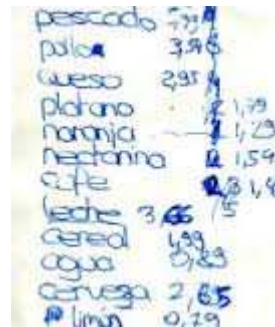 pescado
pollo
queso 2,95
platano 1,79
naranja 1,29
nectarina 1,59
cafe
leche 3,66
cereal 1,99
agua 0,89
cerveza 2,65
limin 0,79